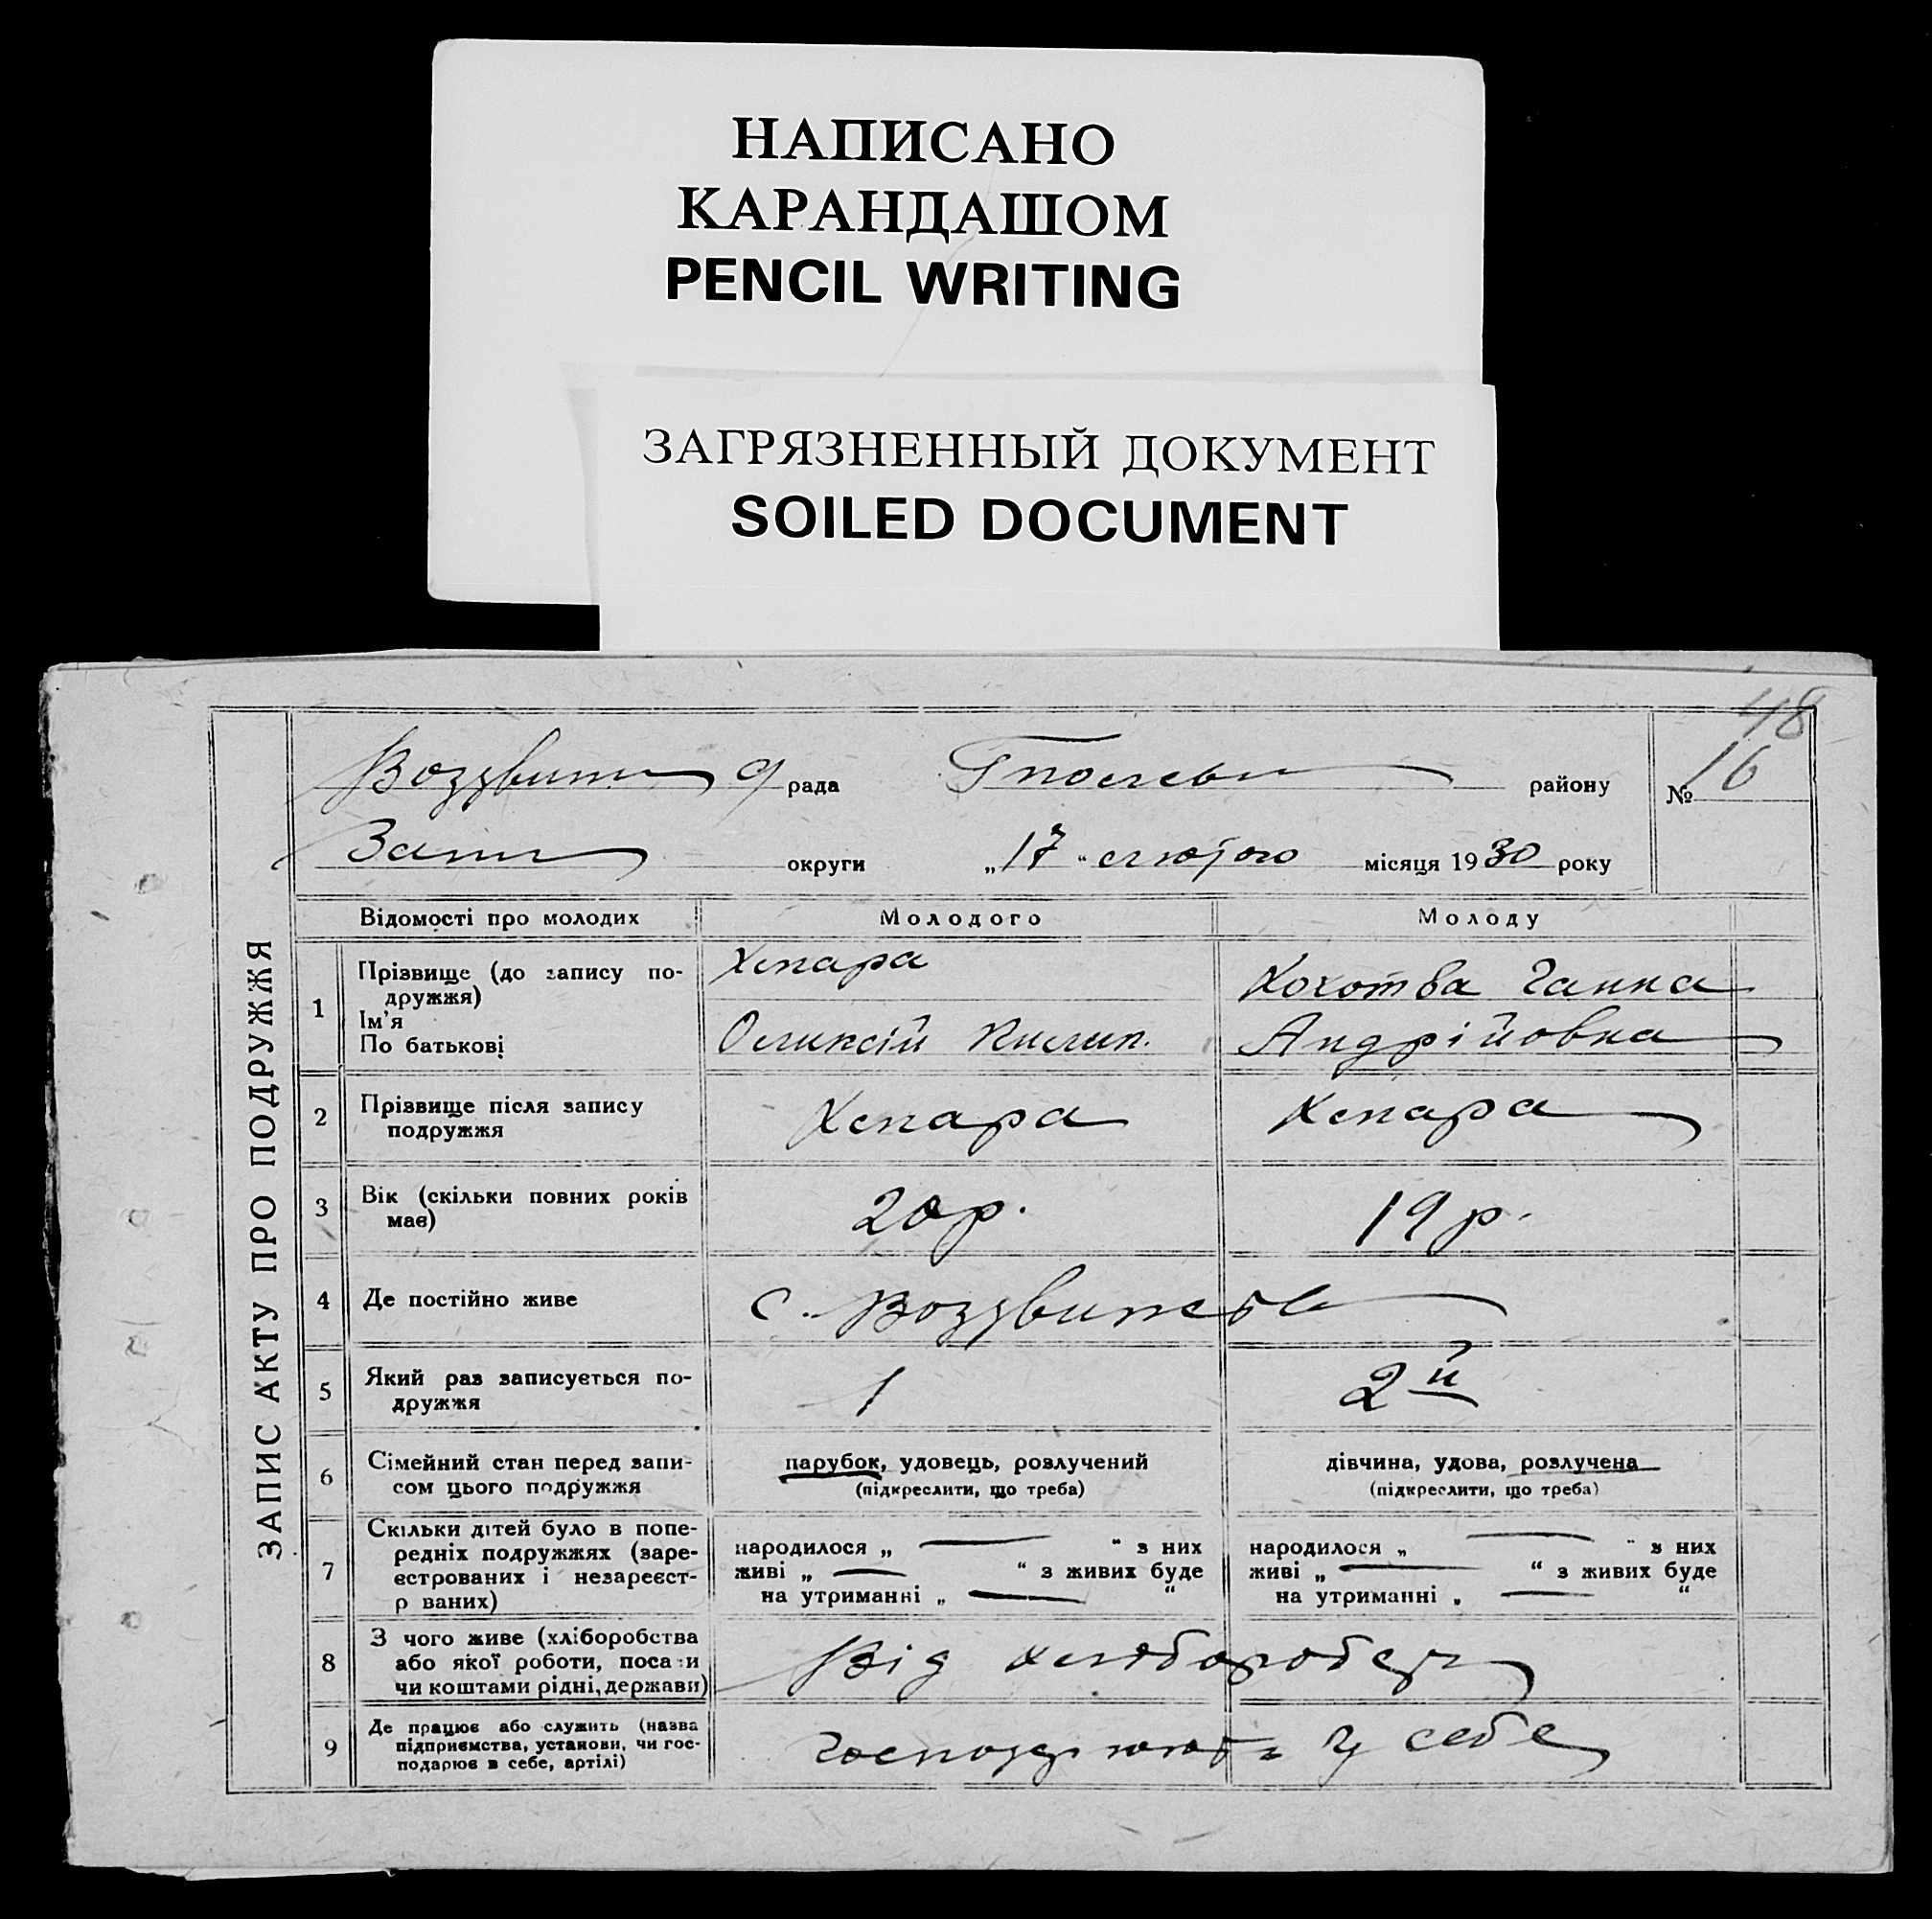 НАПИСАНО
КАРАНДАШОМ
PENCIL WRITING
ЗАГРЯЗНЕННЫЙ ДОКУМЕНТ
SOILED DOCUMENT
48
рада району № 16
округи „17“ лютого місяця 1930 року
ЗАПИС АКТУ ПРО ПОДРУЖЖЯ
Відомості про молодих Молодого Молоду
1 Прізвище (до запису подружжя) Ім'я По батькові
Ганна
Андрійовка
2 Прізвище після запису
подружжя
3 Вік (скільки повних років
має) 20 р. 19 р.
4 Де постійно живе с.
5 Який раз записується по-
дружжя 1 2й
6 Сімейний стан перед запи-
сом цього подружжя
парубок, удовець, розлучений дівчина, удова, розлучена
(підкреслити, що треба) (підкреслити, що треба)
7 Скільки дітей було в попе-
редніх подружжях (заре-
єстрованих і незареєст-
р ваних)
народилося „ — “ з них народилося „ — “ з них
живі „ — “ з живих буде живі „ — “ з живих буде
на утриманні „ — “ на утриманні „ — “
8 З чого живе (хліборобства
або якої роботи, поса и
чи коштами рідні, держави)
Від
9 Де працює або служить (назва
підприємства, установи, чи гос-
подарює в себе, артілі)
у себе